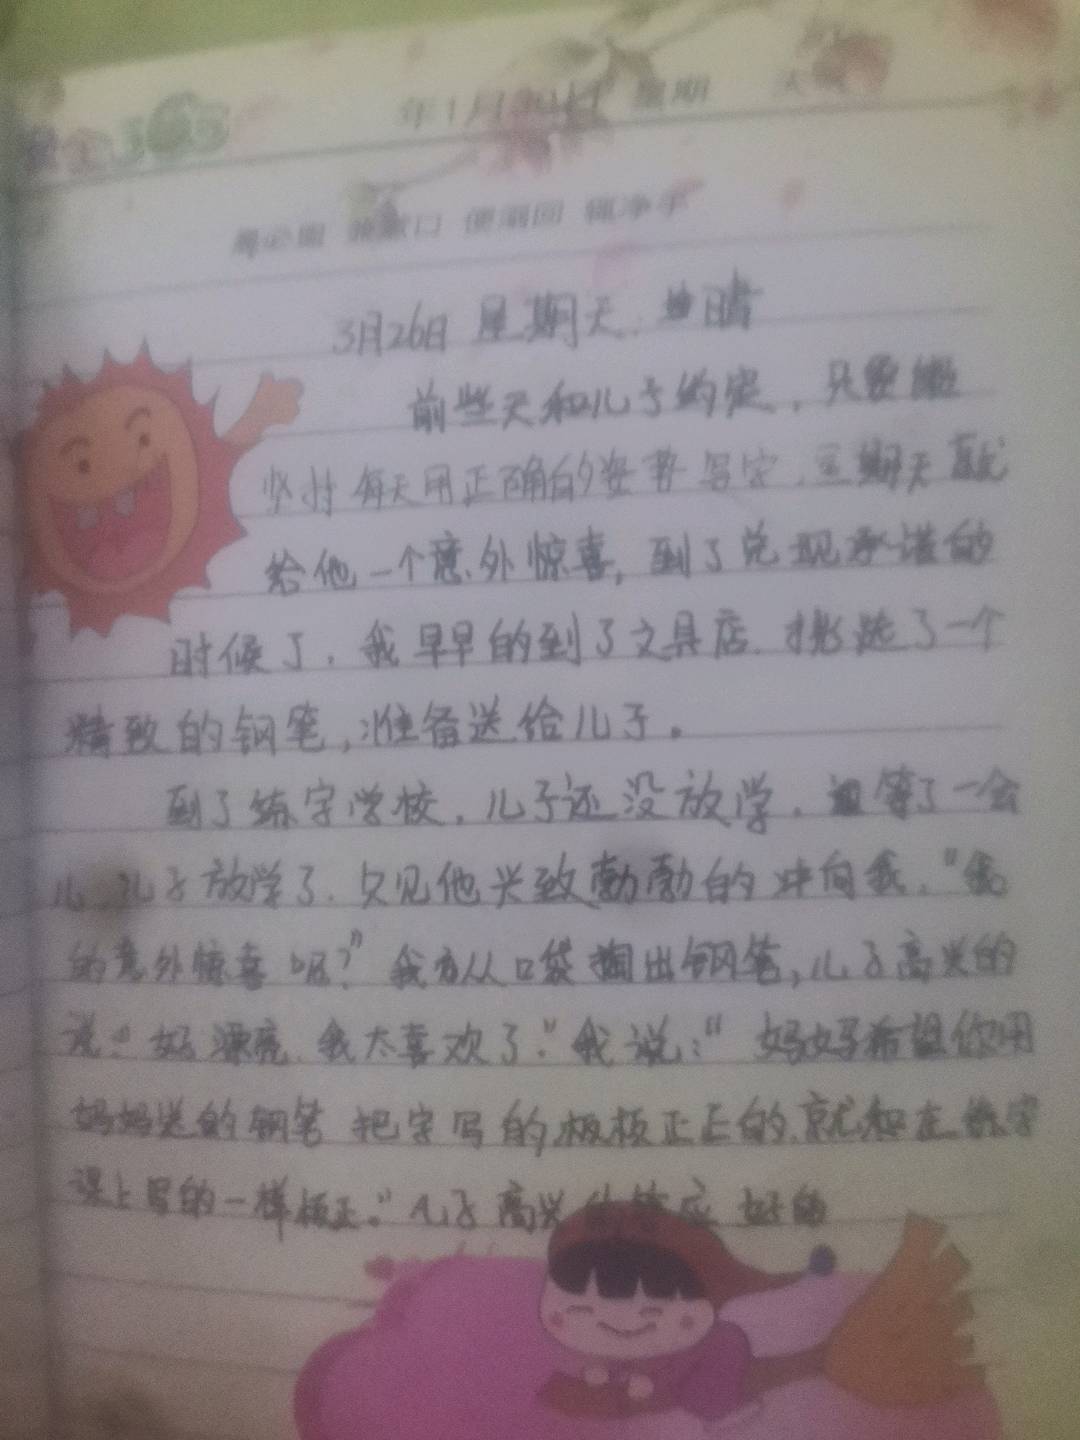 年1月 日 星期
3月26日 星期天 晴
前些天和儿子约定，只要能
坚持每天用正确的姿势写字，星期天就
给他一个意外惊喜，到了兑现承诺的
时候了，我早早的到了文具店，挑选了一个
精致的钢笔，准备送给儿子。
到了练字学校，儿子还没放学，等了一会
儿，儿子放学了，只见他兴致勃勃的冲向我，“我
的意外惊喜呢？”我从口袋掏出钢笔，儿子高兴的
说：“好漂亮，我太喜欢了。”我说：“妈妈希望你用
妈妈送的钢笔把字写的板板正正的，就和在练字
课上写的一样板正。”儿子高兴的答应好的